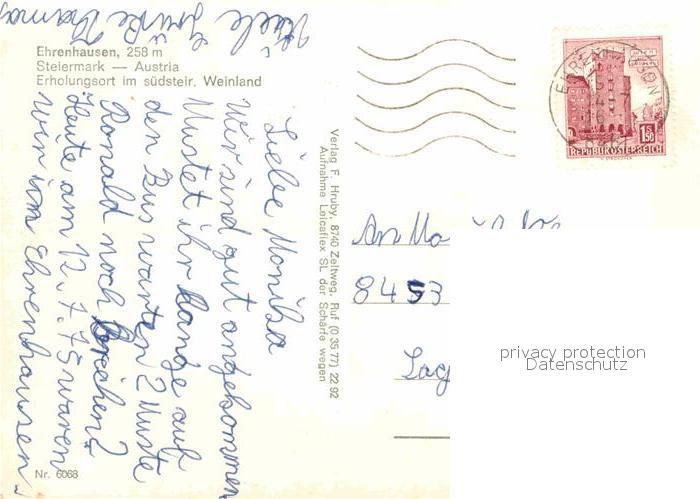 Viele Grüße Thomas
Ehrenhausen, 258 m
Steiermark — Austria
Erholungsort im südsteir. Weinland
Liebe Monika
Wir sind gut angekommen
Mustet ihr lange auf
den Bus warten? Muste
Ronald noch brechen?
Heute am 12.7.75 waren
wir im Ehrenhausen.
Verlag F. Hruby, 8740 Zeltweg, Ruf (0 35 77) 22 92
Aufnahme Leicaflex SL der Schärfe wegen
1.50
REPUBLIK ÖSTERREICH
An
8453
privacy protection
Datenschutz
Nr. 6068